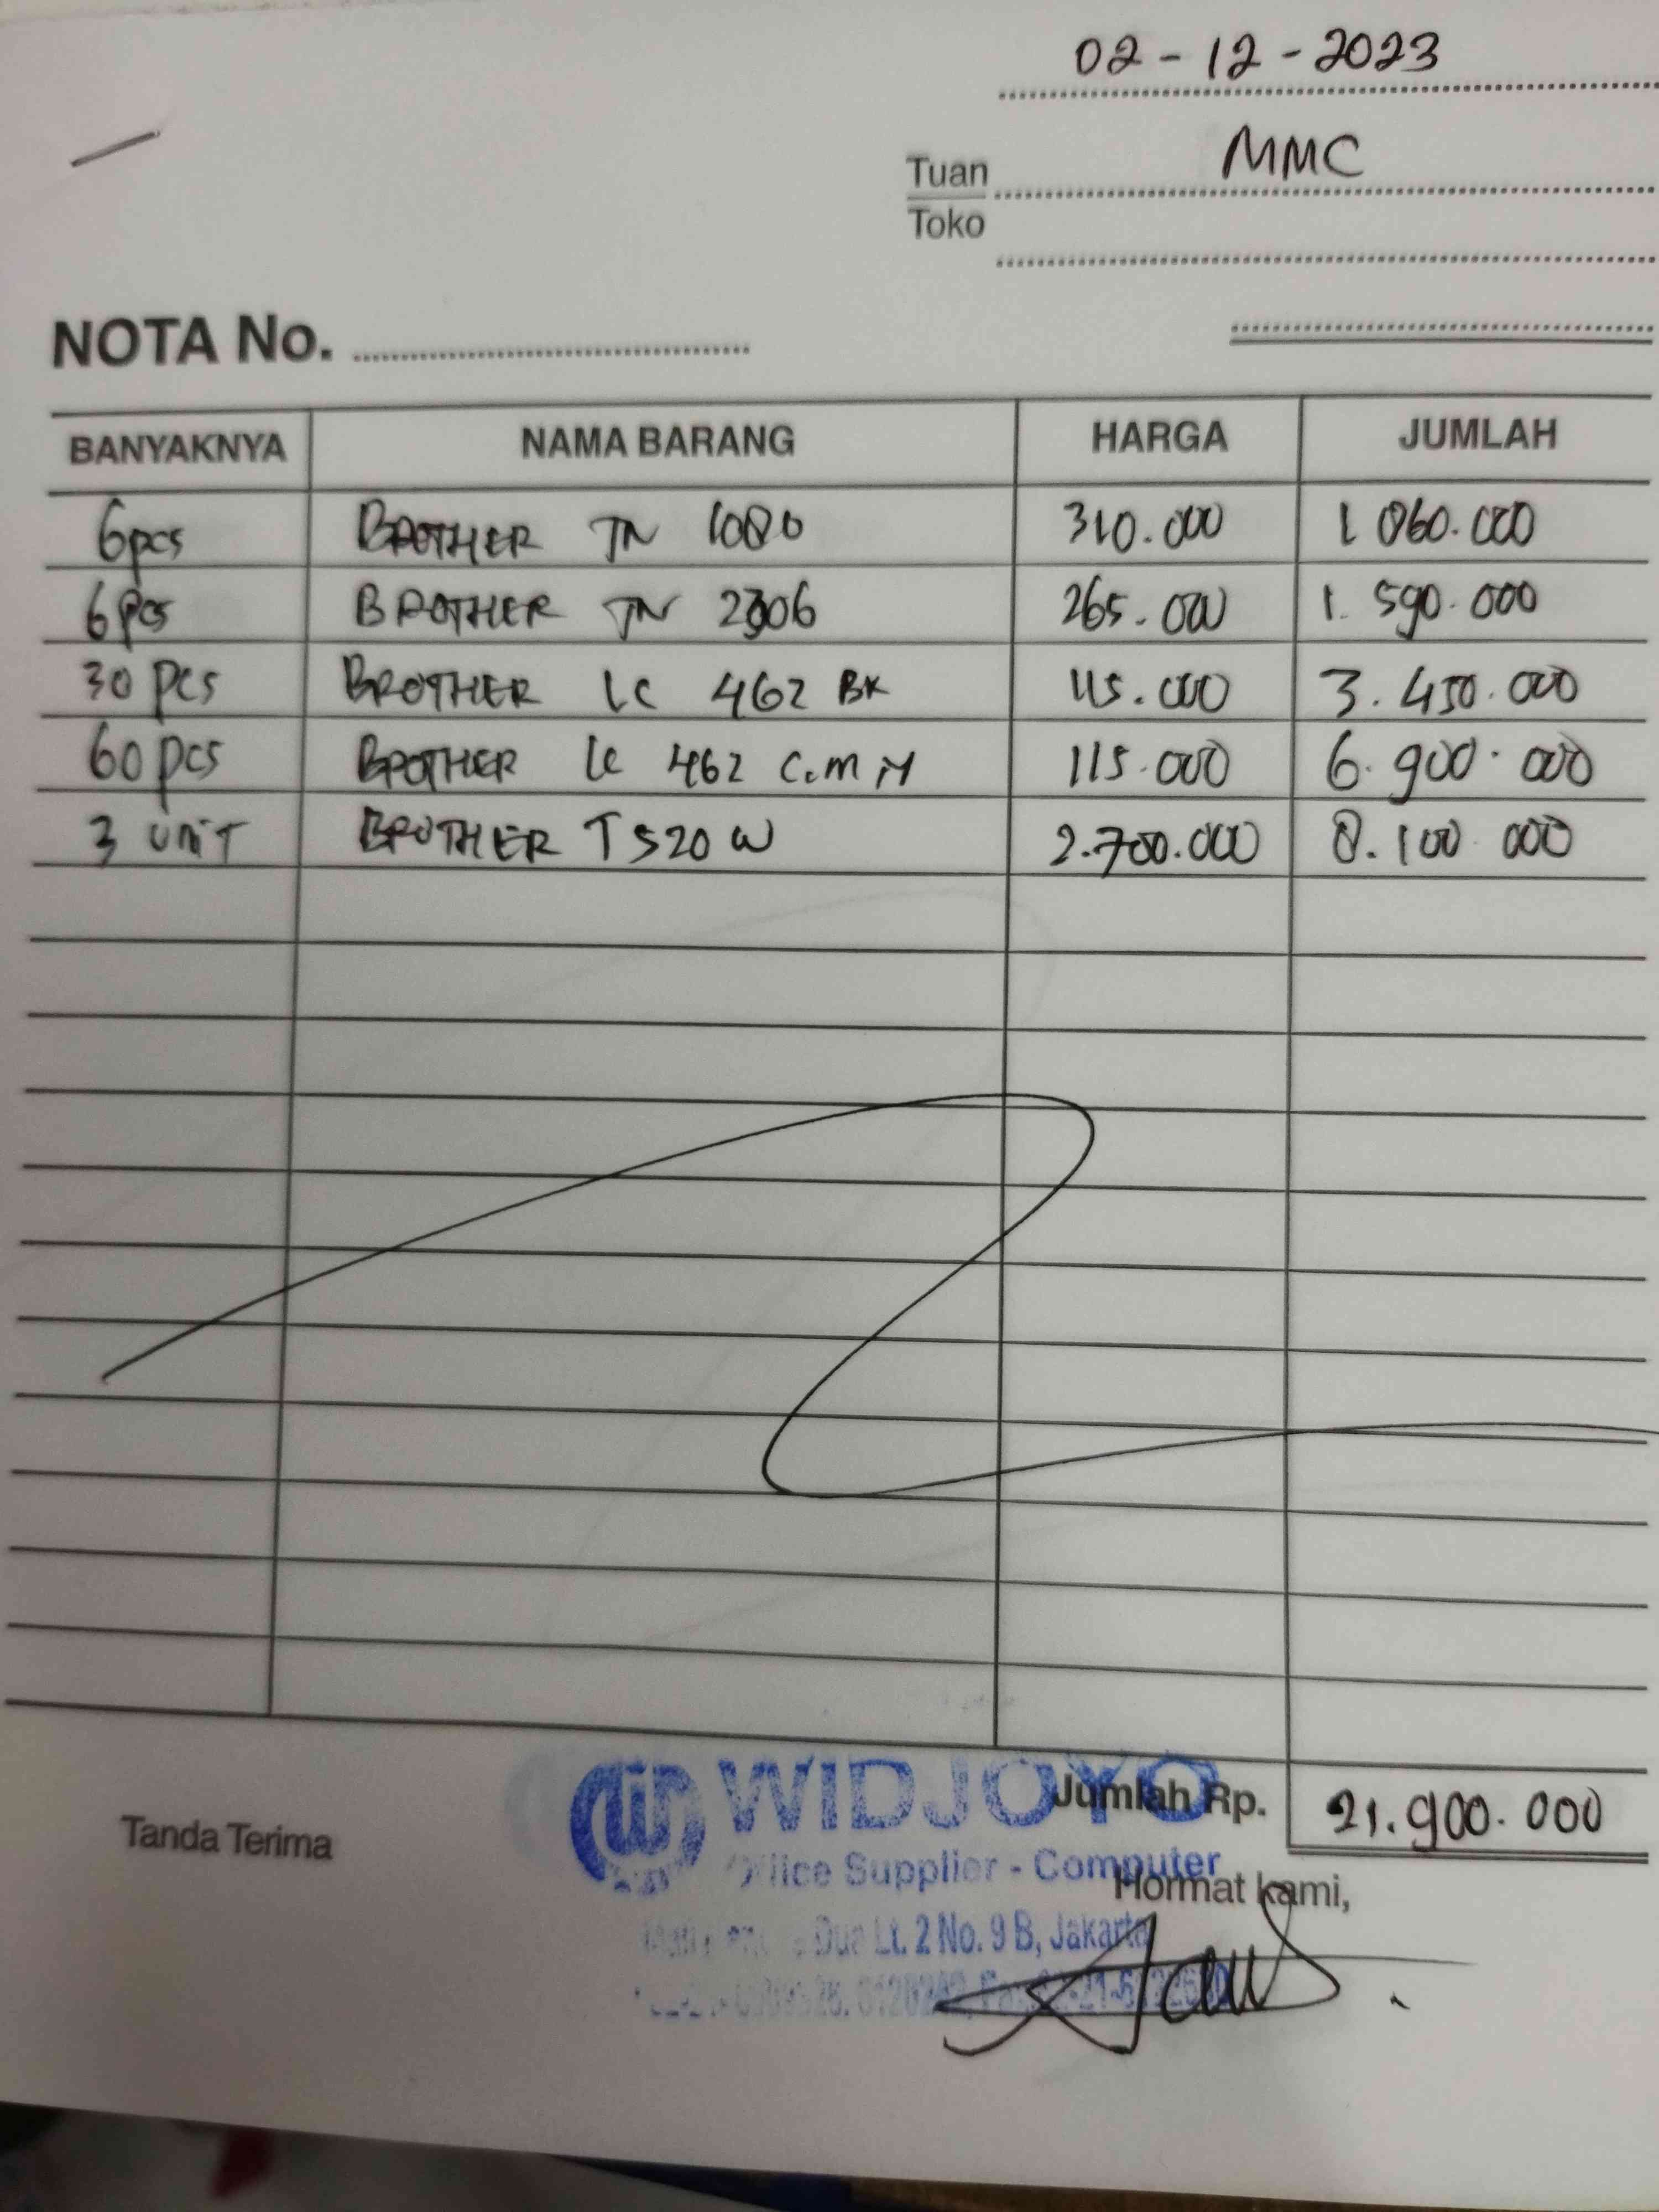 02-12-2023
Tuan MMC
Toko
NOTA No.
BANYAKNYA NAMA BARANG HARGA JUMLAH
6pcs BROTHER TN 1080 310.000 1 860.000
6pcs BROTHER TN 2306 265.000 1. 590.000
30 pcs BROTHER LC 462 BK 115.000 3.450.000
60 pcs BROTHER LC 462 C.M Y 115.000 6.900.000
3 UNIT BROTHER T 520 W 2.700.000 8.100 000
WIDJOYO
Jumlah Rp. 21.900.000
Tanda Terima
Office Supplier - Computer
Hormat kami,
Dua Lt. 2 No. 9 B, Jakarta